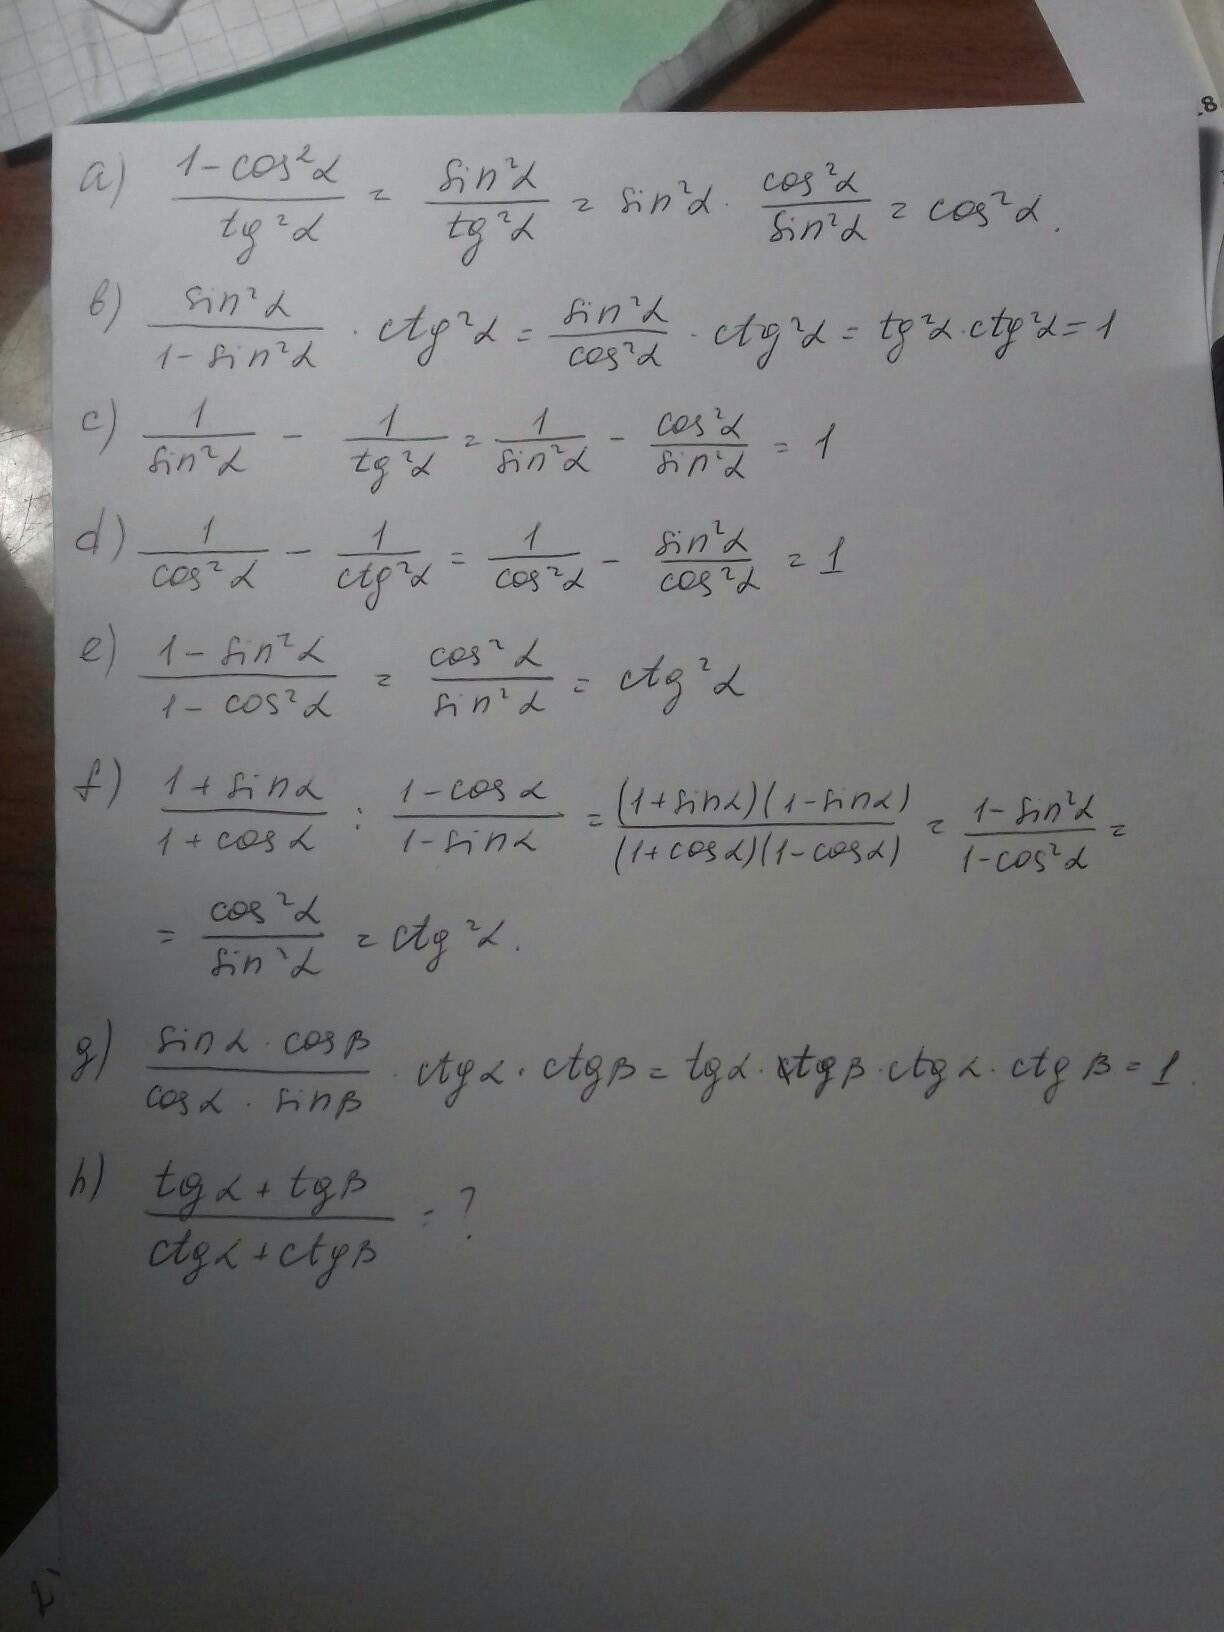 a) (1-cos²α)/(tg²α) = (sin²α)/(tg²α) = sin²α · (cos²α)/(sin²α) = cos²α.
b) (sin²α)/(1-sin²α) · ctg²α = (sin²α)/(cos²α) · ctg²α = tg²α · ctg²α = 1
c) 1/(sin²α) - 1/(tg²α) = 1/(sin²α) - (cos²α)/(sin²α) = 1
d) 1/(cos²α) - 1/(ctg²α) = 1/(cos²α) - (sin²α)/(cos²α) = 1
e) (1-sin²α)/(1-cos²α) = (cos²α)/(sin²α) = ctg²α
f) (1+sinα)/(1+cosα) : (1-cosα)/(1-sinα) = ((1+sinα)(1-sinα))/((1+cosα)(1-cosα)) = (1-sin²α)/(1-cos²α) =
= (cos²α)/(sin²α) = ctg²α.
g) (sinα · cosβ)/(cosα · sinβ) · ctgα · ctgβ = tgα · tgβ · ctgα · ctgβ = 1.
h) (tgα + tgβ)/(ctgα + ctgβ) = ?